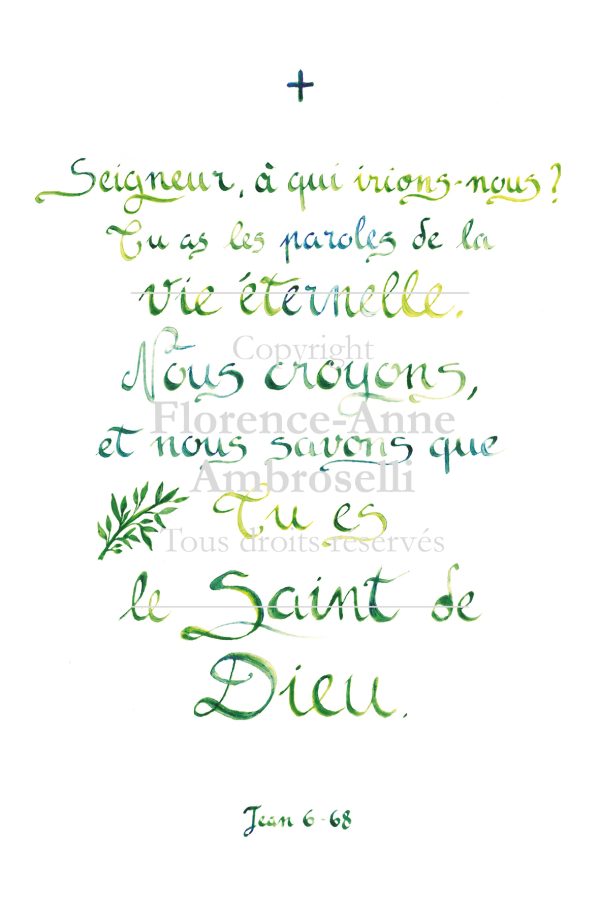 Seigneur, à qui irions-nous?
Tu as les paroles de la
vie éternelle.
Copyright
Nous croyons,
Florence-Anne
et nous savons que
Ambroselli
Tu es
Tous droits réservés
le Saint de
Dieu.
Jean 6-68